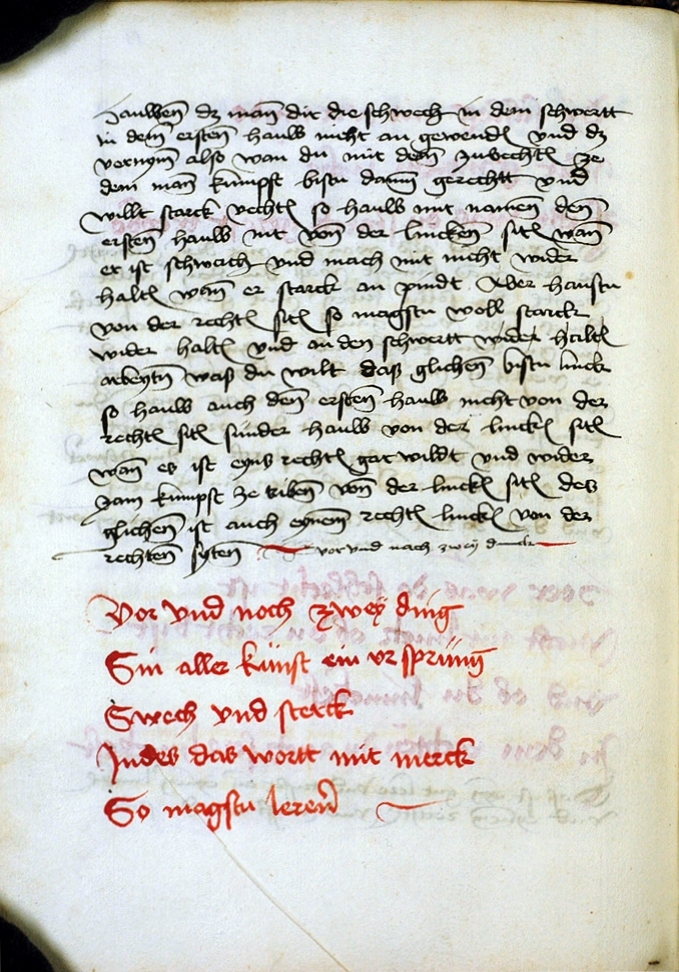 hauben dz man dir die schwech in dem schwertt
in dem ersten haub nicht an gewendt und dz
vernym also wan du mit dem zuvechtñ ze
dem man kumpst bistu dann gerechtt und
willt starck vechtñ so haub mit namen den
ersten haub nit von der lincken sitñ wañ
er ist schwech und mach mit nicht wider
haltñ wann er starck an pindt Aber haustu
von der rechtñ sitñ so magstu woll starck
wider haltñ und an den schwertt wider haltñ
arbeytñ waß du wilt daß glichen bistu linck
so haub auch den ersten haub nicht von der
rechtñ sitñ sunder haub von der linckñ sitñ
wan es ist eyns rechtñ gar wildt und wider
zam kumpst ze triben von der linckñ sitñ des
glichen ist auch eynem rechtñ linckñ von der
rechten syten vor und nach zwey
Vor und noch zwey ding
Sin aller künst ein ursprüng
Swech und sterck
Indes das wortt mit merck
So magstu leren